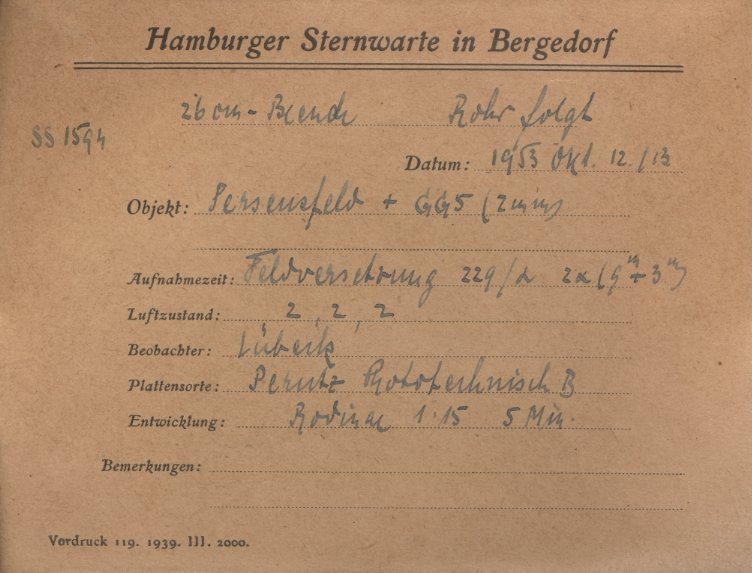 Hamburger Sternwarte in Bergedorf
26 cm - Blende Rohr folgt
SS 1594
Datum: 1953 Okt. 12./13
Objekt: Perseusfeld + GG5 (2mm)
Aufnahmezeit: Feldversetzung 229/α 2x (9ᵐ + 3ᵐ)
Luftzustand: 2, 2, 2
Beobachter: Lübeck
Plattensorte: Perutz Phototechnisch B
Entwicklung: Rodinal 1:15 5 Min.
Bemerkungen:
Vordruck 119. 1939. III. 2000.